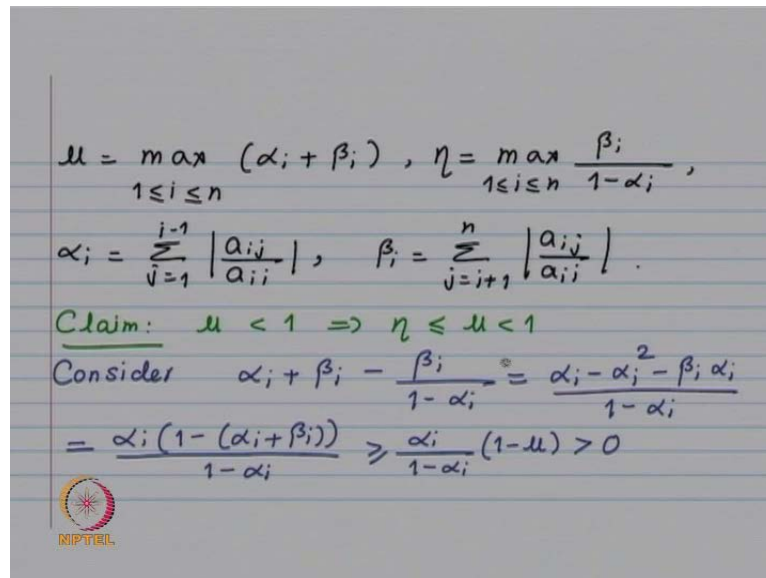 μ = max (αi + βi) , η = max βi / (1-αi) ,
1≤i≤n 1≤i≤n
αi = Σ_{j=1}^{i-1} |aij / aii| , βi = Σ_{j=i+1}^{n} |aij / aii| .
Claim: μ < 1 => η ≤ μ < 1
Consider αi + βi - βi / (1-αi) = (αi - αi² - βi αi) / (1-αi)
= αi (1-(αi+βi)) / (1-αi) ≥ αi / (1-αi) (1-μ) > 0
NPTEL